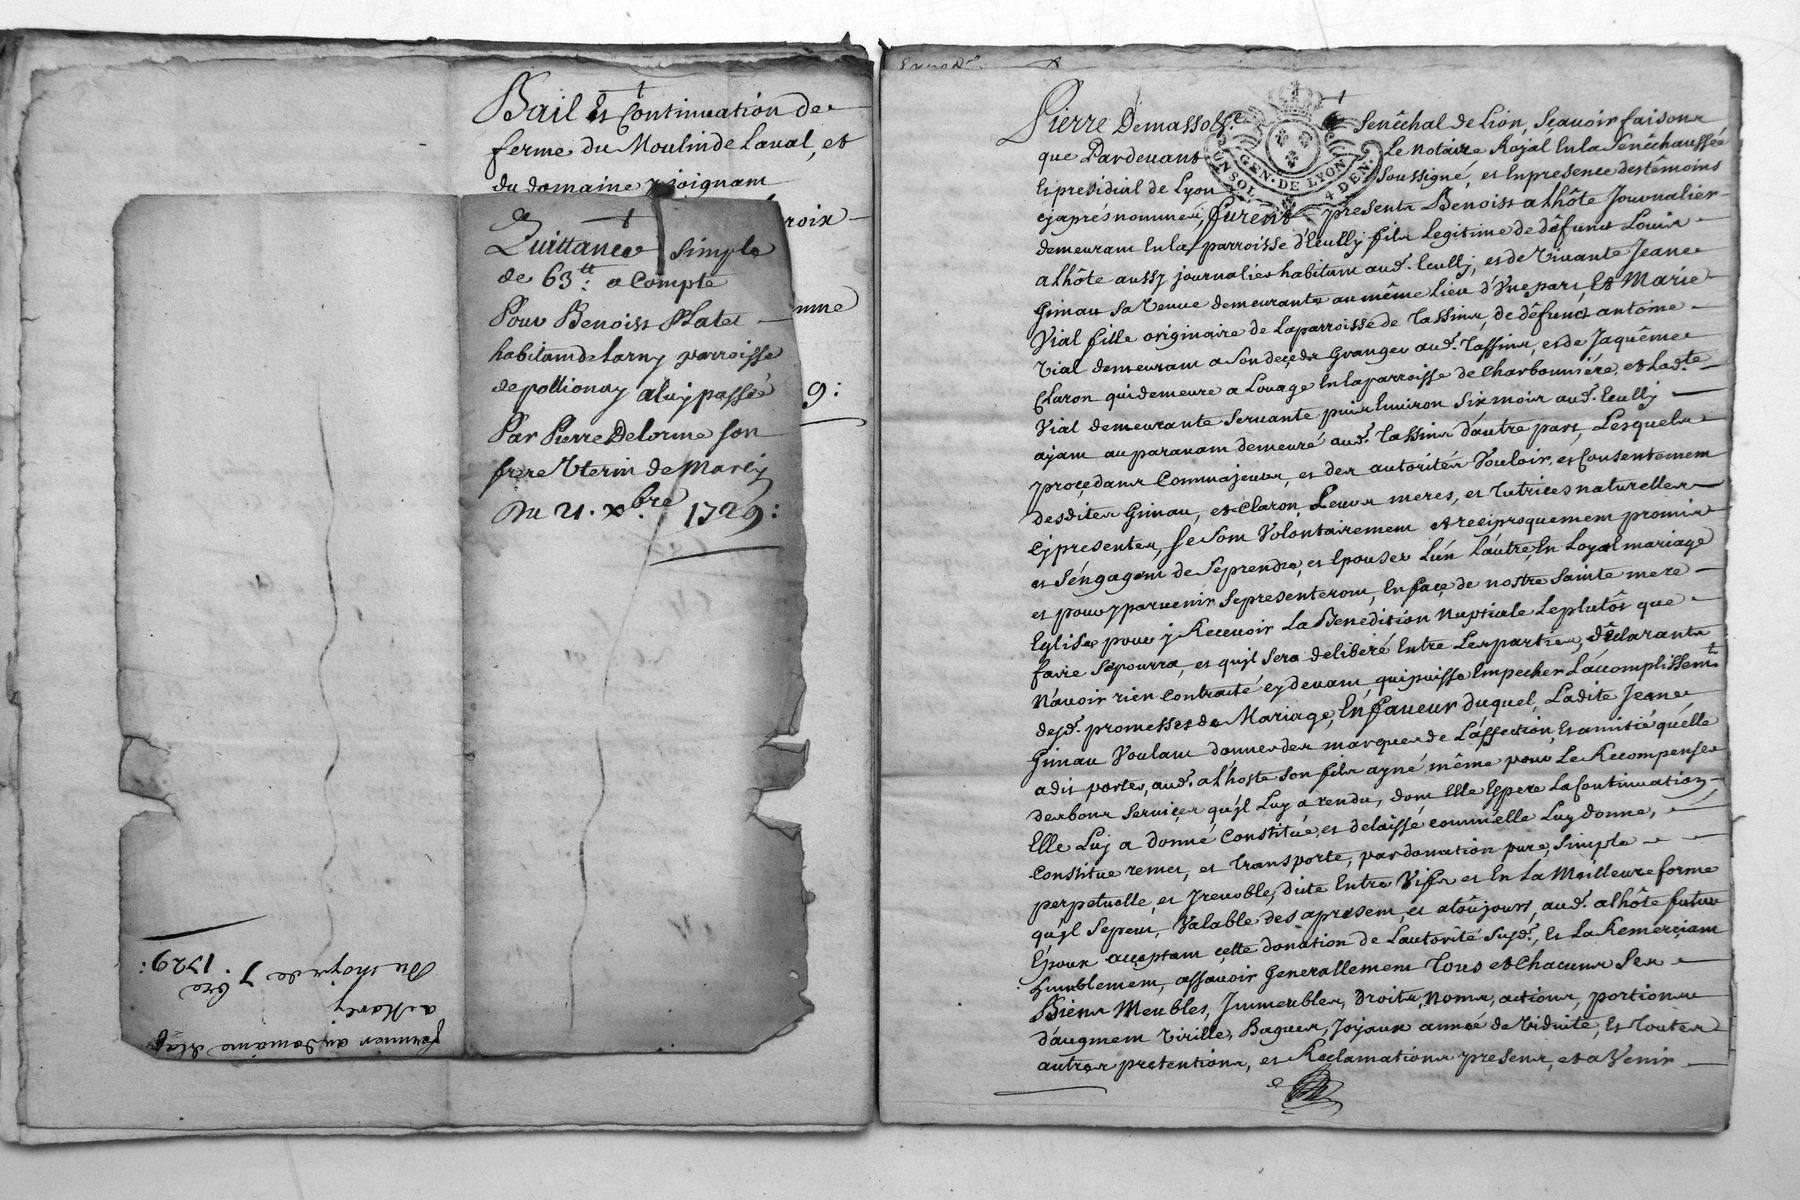 Bail Et Continuation de
ferme du Moulin de Laval, et
du domaine y joignam
roix
nne
9:
Quittance simple
de 63.tt a Compte
Pour Benoist Platet
habitam de Larny parroisse
de pollionay a luy passée
Par Pierre Delorme son
frere Uterin de Marcy
Du 21. xbre 1729:
fermier du domaine
a Marcy
Du 7.bre 1729:
Pierre Demasso &c. Senêchal de Lion, Sçavoir faisons
que Pardevant Le notaire Royal En la Senêchaussée
Et presidial de Lyon Soussigné, et En presence des têmoins
cy aprés nommés, furent presents Benoist alhôte Journalier
demeuram En la parroisse d'Ecully fils Legitime de défunct Louis
alhôte aussy journalier habitam aud. Ecully, et de Vivante Jeane
Ginau sa Veuve demeurante au même Lieu d'Une part, Et Marie
Vial fille originaire de La parroisse de Tassins, de défunct antoine
Vial demeuram a Son deçeds Granger aud. Tassins, et de Jaquême
Claron qui demeure a Louage En la parroisse de Charbonniére, et Lad.te
Vial demeurante Servante puis Environ Six mois aud. Ecully
ayam auparavam demeuré aud. Tassins d'autre part, Lesquels
proçedans Comme majeurs, et des autorités Vouloir, et Consentemem
desdites Ginau, et Claron, Leurs meres, et Tutrices naturelles
Cy presentes, se Som Volontairemem et reciproquemem promis
et S'engagem de Se prendre, et Epouser L'ún L'autre, En Loyal mariage
et pour y parvenir Se presenterom, En façe de nostre Sainte mere
Eglise pour y Recevoir La Benediction Nuptiale Le plutôt que
faire Se pourra, et qu'jl Sera deliberé Entre Les parties, déclarants
N'avoir rien Contracté cy devam, qui puisse Empecher L'accomplissem.t
desd. promesses de Mariage, En faveur duquel, Ladite Jeane
Ginau Voulam donner des marques de L'affection, Et amitié qu'elle
a dit porter, aud. alhoste Son fils ayné, même pour Le Recompenser
des bons Serviçes qu'jl Luy a rendu, dom Elle Espere La Continuation,
Elle Luy a donné Constitué, et delaissé comm'elle Luy donne,
Constitue remet, et Transporte, par donation pure, Simple
perpetuelle, et jrrevoble, dite Entre Vifs et En La Meilleure forme
qu'jl Se peut, Valable des a present, et a toûjours, aud. alhôte futur
Epoux acçeptam cette donation de L'autorité Susd., Et La Remerçiam
humblemem, assavoir Generallemem Tous et Chacuns Ses
Biens Meubles, Jmmeubles, Droits, Noms, actions, portions
d'augmem Virille, Bagues, Joyaux année de Viduité, Et Toutes
autres pretentions, et Reclamations presens, et a Venir
GEN. DE LYON
4 DEN.